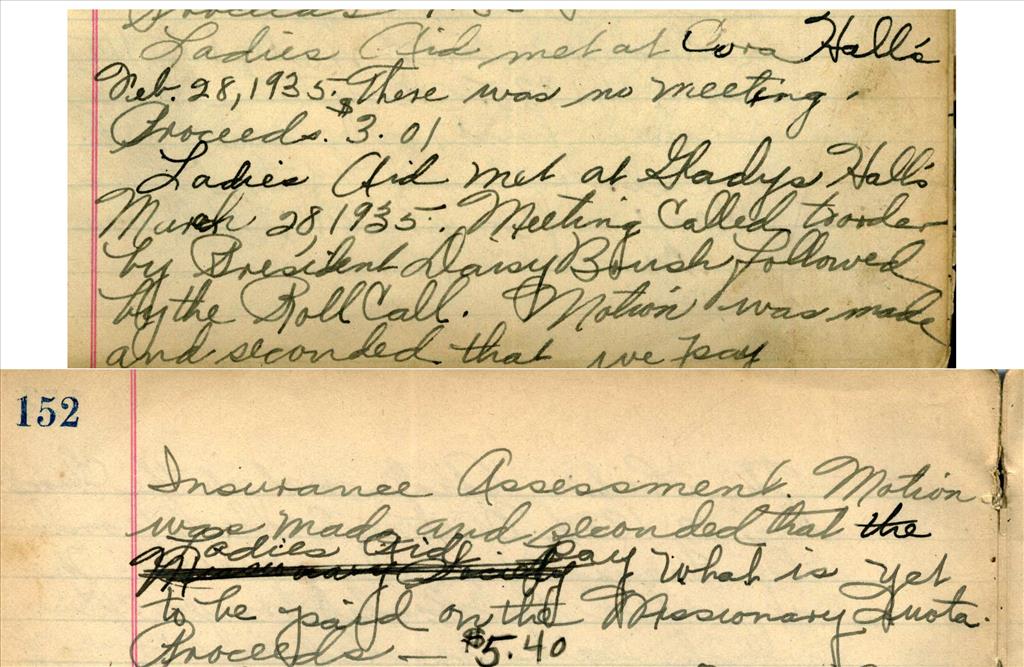 Proceeds
Ladies Aid met at Cora Hall's
Feb. 28, 1935. There was no meeting.
Proceeds. $3.01
Ladies Aid met at Gladys Hall's
March 28, 1935. Meeting Called to order
by President Daisy Boush followed
by the Roll Call. Motion was made
and seconded that we pay
152
Insurance Assessment. Motion
was made and seconded that the
Ladies Aid pay
Missionary Society What is yet
to be paid on the Missionary Quota.
Proceeds — $5.40